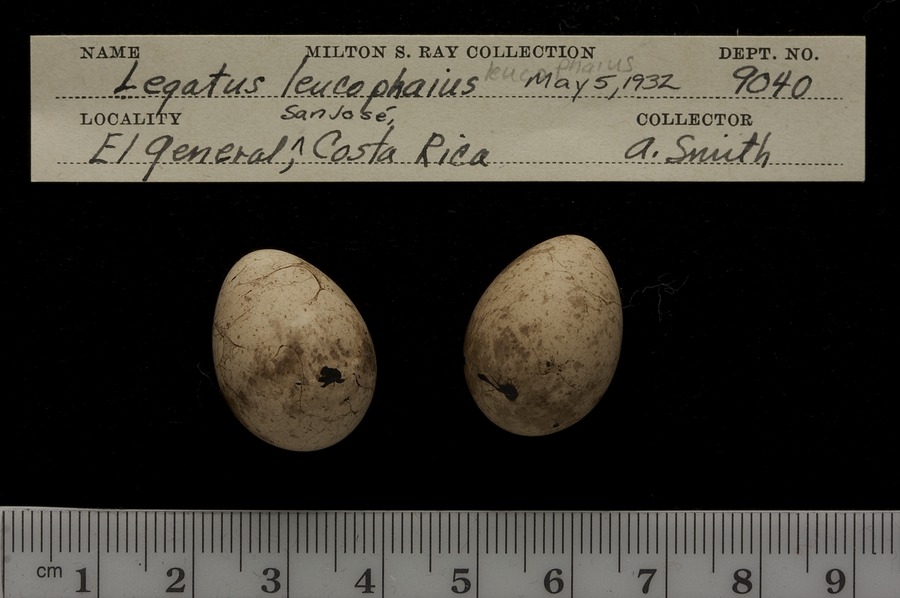 NAME MILTON S. RAY COLLECTION DEPT. NO.
Legatus leucophaius leucophaius May 5, 1932 9040
LOCALITY San José, COLLECTOR
El General, ^ Costa Rica A. Smith
cm 1 2 3 4 5 6 7 8 9